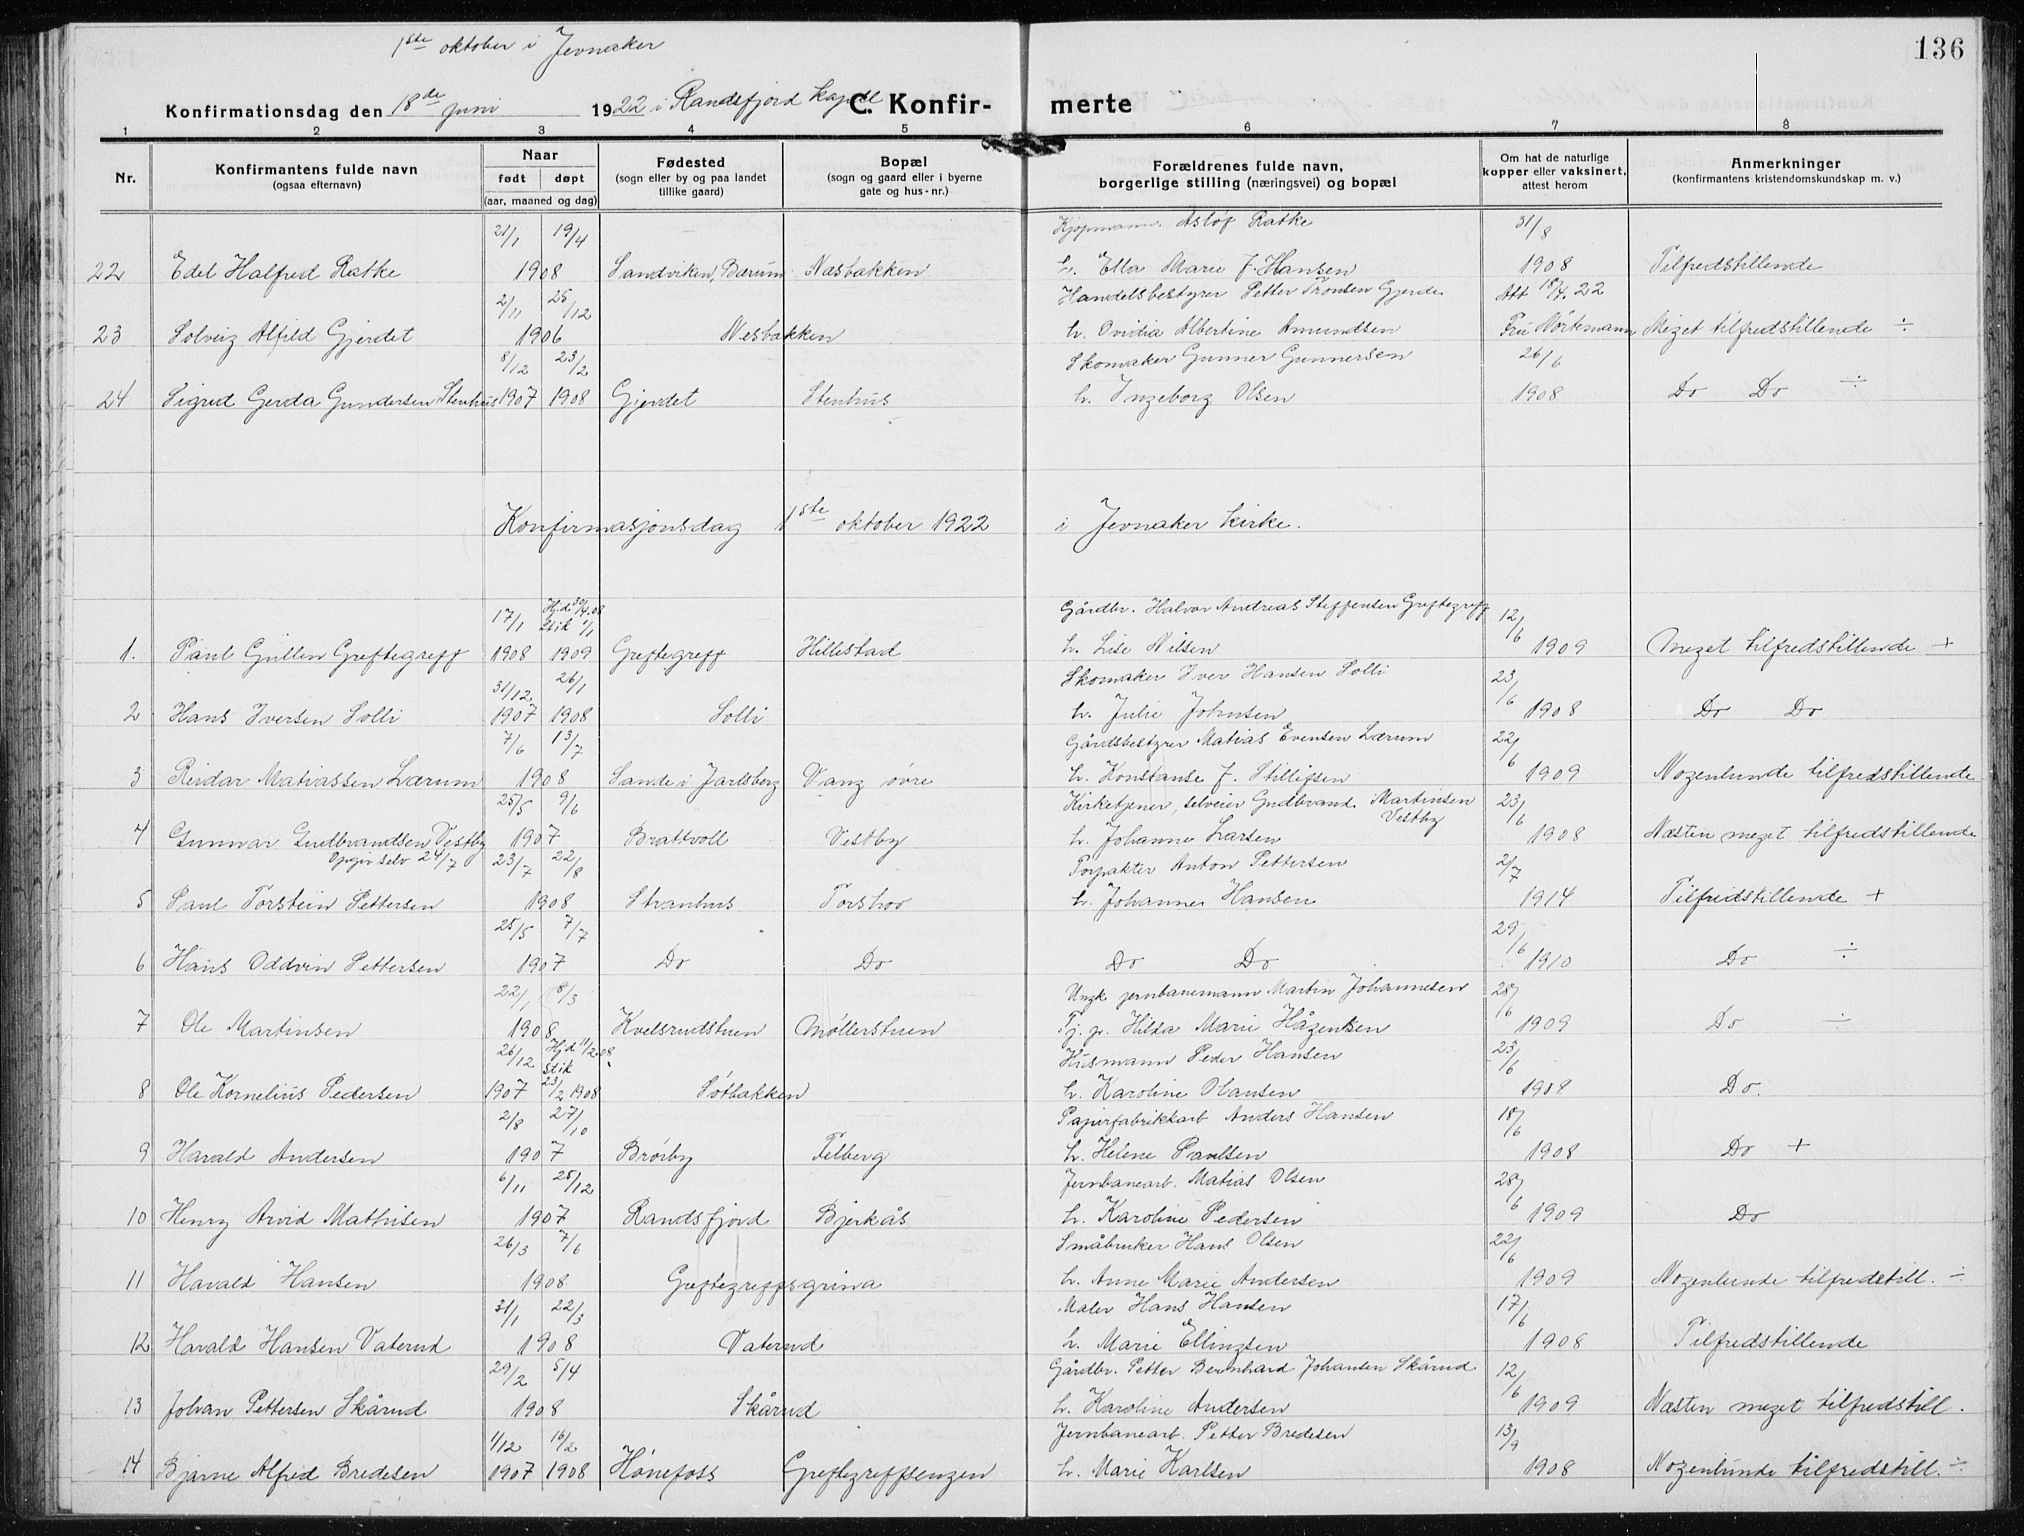 136
1ste oktober i Jevnaker
Konfirmationsdag den 18de juni 1922 i Randsfjord kapell C. Konfir- merte
1 2 3 4 5 6 7 8
Nr.
Konfirmantens fulde navn
(ogsaa efternavn)
Naar
født døpt
(aar, maaned og dag)
Fødested
(sogn eller by og paa landet
tillike gaard)
Bopæl
(sogn og gaard eller i byerne
gate og hus-nr.)
Forældrenes fulde navn,
borgerlige stilling (næringsvei) og bopæl
Om hat de naturlige
kopper eller vaksinert,
attest herom
Anmerkninger
(konfirmantens kristendomskundskap m. v.)
21/1 19/4 Kjøpmann Asløf Ratke 31/8
22 Edel Halfred Ratke 1908 Sandviken, Bærum Næsbakken h. Ella Marie f. Hansen 1908 Tilfredstillende
2/11 25/12 Handelsbestyrer Petter Tronsen Gjerde Att 18/4.22
23 Solveig Alfild Gjerdet 1906 Nesbakken h. Ovidia Albertine Amundsen Fru Nortmann Meget tilfredstillende ÷
8/12 23/2 Skomaker Gunner Gunnersen 26/6
24 Sigrid Gerda Gundersen Stenhus 1907 1908 Gjerdet Stenhus h. Ingeborg Olsen 1908 Do Do ÷
Konfirmasjonsdag 1ste oktober 1922 i Jevnaker kirke.
17/1 Hj.d. 30/4.08 Stik 1/1 Gårdbr. Halvor Andreas Steffensen Greftegreff 12/6
1. Paul Gullen Greftegreff 1908 1909 Greftegreff Hillestad h. Lise Nilsen 1909 Meget tilfredstillende +
31/12 26/1 Skomaker Iver Hansen Solli 23/6
2 Hans Iversen Solli 1907 1908 Solli h. Julie Johnsen 1908 Do Do
7/6 13/7 Gårdsbestyrer Matias Evensen Lærum 22/6
3 Reidar Matiassen Lærum 1908 Sande i Jarlsberg Vang øvre h. Konstanse f. Stilligsen 1909 Nogenlunde tilfredstillende
25/5 9/6 Kirketjener, selveier Gudbrand Martinsen Vestby 23/6
4 Gunnar Gudbrandsen Vestby 1907 Brattvoll Vestby h. Johanne Larsen 1908 Næsten meget tilfredstillende
Opgir selv 24/7 23/7 22/8 Forpakter Anton Pettersen 2/7
5 Paul Torstein Pettersen 1908 Stranhus Torshov h. Johanne Hansen 1914 Tilfredstillende +
25/5 7/7 29/6
6 Hans Oddvin Pettersen 1907 Do Do Do Do 1910 Do ÷
22/1 8/3 Ungk. jernbanemann Martin Johannesen 28/6
7 Ole Martinsen 1908 Kvelsrudstuen Møllerstuen Tj. p. Hilda Marie Hågensen 1909 Do ÷
26/12 Hj.d. 11/2.08 Stik Husmann Peder Hansen 23/6
8 Ole Kornelius Pedersen 1907 23/2 1908 Søtbakken h. Karoline Olausen 1908 Do.
2/8 27/10 Papirfabrikkarb Anders Hansen 18/6
9 Harald Andersen 1907 Brørby Felberg h. Helene Paulsen 1908 Do +
6/11 25/12 Jernbanearb. Matias Olsen 28/6
10 Henry Arvid Mathisen 1907 Randsfjord Bjerkås h. Karoline Pedersen 1909 Do
26/3 7/6 Småbruker Hans Olsen 22/6
11 Harald Hansen 1908 Greftegreffsgrina h. Anne Marie Andersen 1909 Nogenlunde tilfredstill. ÷
31/1 22/3 Maler Hans Hansen 17/6
12 Harald Hansen Vaterud 1908 Vaterud h. Marie Ellingsen 1908 Tilfredstillende
29/2 5/4 Gårdbr. Petter Bernhard Johansen Skårud 12/6
13 Johan Pettersen Skårud 1908 Skårud h. Karoline Andersen 1909 Næsten meget tilfredstill.
1/12 16/2 Jernbanearb. Petter Bredesen 13/9
14 Bjarne Alfred Bredesen 1907 1908 Hønefoss Greftegreffsengen h. Marie Karlsen 1908 Nogenlunde tilfredstill. ÷